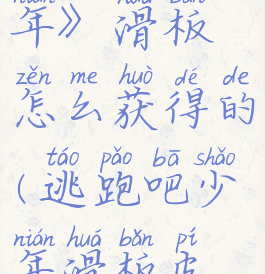 年》 滑板
zěn me huò dé de
怎么获得的
táo pǎo bā shǎo
（逃跑吧少
nián huá bǎn pí
年滑板皮